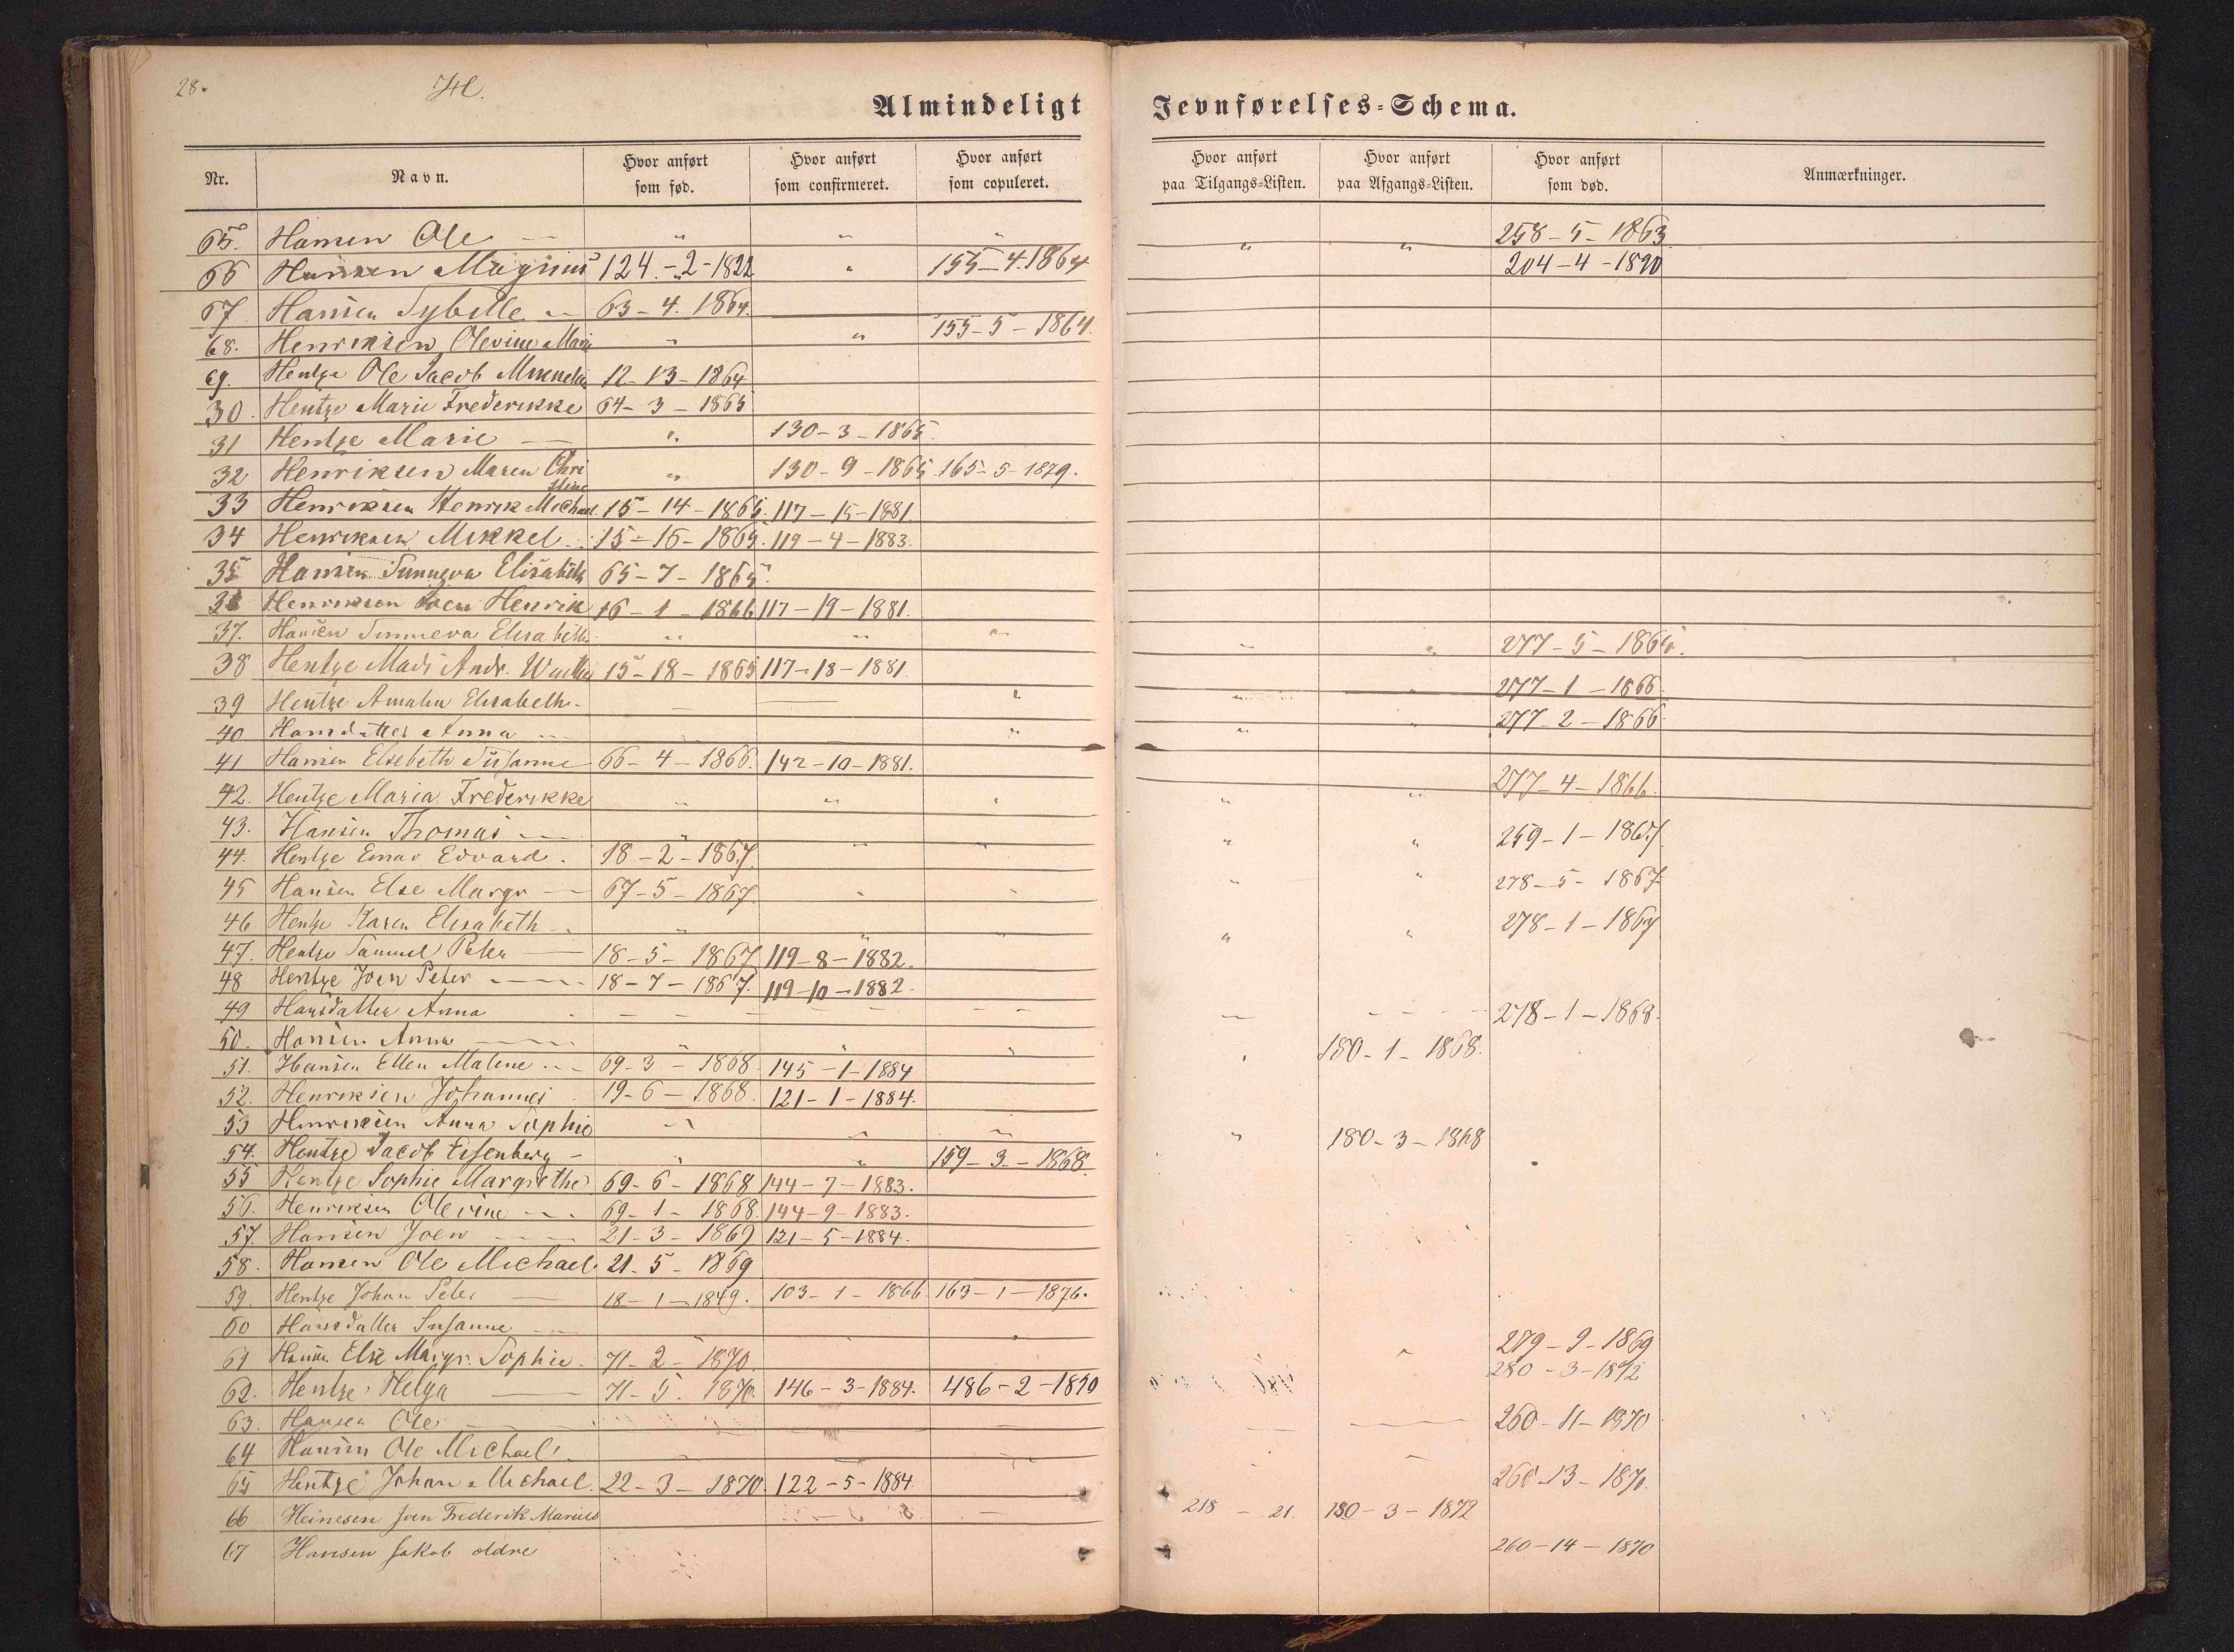 28.
H.
Almindeligt Jevnførelses-Schema.
Nr. Navn. Hvor anført som fød. Hvor anført som confirmeret. Hvor anført som copuleret. Hvor anført paa Tilgangs-Listen. Hvor anført paa Afgangs-Listen. Hvor anført som død. Anmærkninger.
65. Hansen Ole — " " " " " 258-5-1863
66 Hansen Magnus 124.-2-1822 " 155-4.1864 204-4-1890
67 Hansen Sybille — 63-4.1864.
68. Henriksen Olevine Marie " " 155-5-1864.
69. Hentze Ole Jacob 12-13-1864
30. Hentze Marie Frederikke 64-3-1865
31 Hentze Marie — " 130-3-1865
32 Henriksen Maren Christine " 130-9-1865 165-5-1879.
33 Henriksen Henrik Michael 15-14-1865. 117-15-1881.
34 Henriksen Mikkel 15-16-1865. 119-4-1883.
35 Hansen Sunneva Elisabeth 65-7-1865.
36 Henriksen Joen Henrik 16-1-1866 117-19-1881.
37. Hansen Sunneva Elisabeth " " " " " 277-5-1865.
38 Hentze Mads Andr. 15-18-1865 117-18-1881.
39 Hentze Amalia Elisabeth - — — " " " 277-1-1866
40 Hansdatter Anna " " " 277-2-1866
41 Hansen Elsebeth Susanne 66-4-1866. 142-10-1881.
42. Hentze Maria Frederikke " " " " " 277-4-1866.
43. Hansen Thomas — " " " " " 259-1-1867
44. Hentze Einar Edvard. 18-2-1867.
45 Hansen Else Margr — 67-5-1867. " " " " 278-5-1867.
46 Hentze Karen Elisabeth " " " " " 278-1-1867
47. Hentze Samuel Peter — 18-5-1867 119-8-1882.
48 Hentze Joen Peter — 18-7-1867. 119-10-1882.
49 Hansdatter Anna — — — — — 278-1-1868.
50. Hansen Anna — " " " " 180-1-1868.
51. Hansen Ellen Malene 69-3-1868 145-1-1884
52. Henriksen Johannes 19-6-1868. 121-1-1884.
53 Henriksen Anna Sophie " " " " 180-3-1868
54. Hentze Jacob Eisenberg - " " 159-3-1868.
55 Hentze Sophie Margrethe 69-6-1868 144-7-1883.
56. Henriksen Olevine 69-1-1868. 144-9-1883.
57. Hansen Joen — 21-3-1869 121-5-1884.
58. Hansen Ole Michael 21-5-1869
59. Hentze Johan Peter — 18-1-1849. 103-1-1866 163-1-1876.
60 Hansdatter Susanne " " " " 279-9-1869
61 Hansen Else Margr. Sophie. 71-2-1870. 280-3-1872
62. Hentze Helga — 71-5-1870. 146-3-1884. 486-2-1890
63. Hansen Ole — — — 260-11-1870
64 Hansen Ole Michael. " " 260-13-1870.
65 Hentze Johan Michael. 22-3-1870. 122-5-1884.
66 Heinesen Joen Frederik Marius — 218 - 21. 180-3-1872
67 Hansen Jakob ældre 260-14-1870